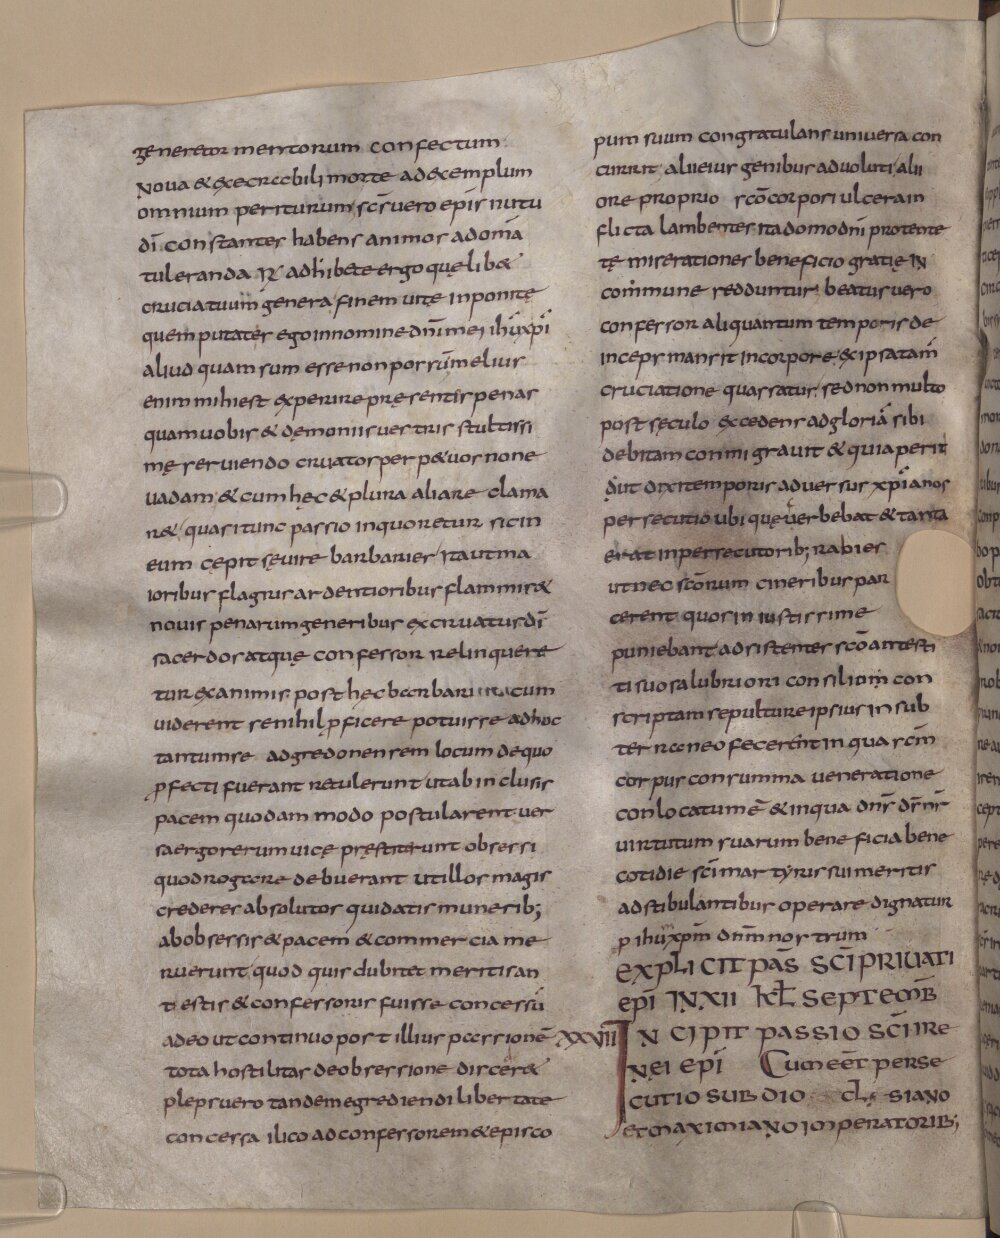 generetormentorum confectum
Noua & execrabili morte adexemplum
omnium periturum scs̄ uero epīs nutu
dī constanter habens animos adomā
tuleranda R̄ adhibete ergo quelib&
cruciatuum genera finem uite inponite
quem putates ego innomine dnīmei ihūxpī
aliud quam sum esse non possum melius
enim mihi est experire presentis penas
quam uobis & demoniis uestris stultissi
me seruiendo cruator perp&uos none
uadam & cum hęc & plura aliare clama
r& quasi tunc passio inquoretur sic in
eum cepit seuire barbaries ita ut ma
ioribus flagris ardentioribus flammis &
nouis penarum generibus excruatus dī
sacerdos atque confessor relinquere
tur exanimis post hęc barbari cum
uiderent se nihil ꝑficere potuisse adhoc
tantum se adgredonensem locum dequo
ꝑfecti fuerant retulerunt utab inclusis
pacem quodam modo postularent uer
sa ergo rerum uice prestiterunt obsessi
quod rogare debuerant utillos magis
crederes absolutos quidatis munerib;
abobsessis & pacem & commercia me
ruerunt quod quis dubitet meritis an
testis & confessoris fuisse concessū
adeo ut continuo post illius passionē
tota hostilitas deobsessione disceder&
pleps uero tandem egrediendi libertate
concessa ilico adconfessorem & episco
pum suum congratulans uniuersa con
currit alii eius genibus aduoluti alii
ore proprio scō corpori ulcera in
flicta lambentes ita domo dnī protente
te miserationes beneficio gratię IN
com̄mune redduntur beatus uero
confessor aliquantum temporis de
inceps mansit incorpore & ipsa tam
cruciatione quassatus sed non multo
post seculo excedens adgloriā sibi
debitam conmigrauit & quia perit
dut dixi temporis aduersus xpīanos
persecutio ubique uerbebat & tanta
erat inpersecutorib; rabies
ut nec scōrum cineribus par
cerent quos iniustissime
puniebant adsistentes scō antesti
ti suo salubriori consilium con
scriptam sepulture ipsius in sub
terraneo fecerent in qua scm̄
corpus con summa ueneratione
conlocatum ē & in qua dns̄ ds̄ nr̄
uirtutum suarum beneficia bene
cotidie scī martyris sui meritis
adstibulantibus operare dignatur
ꝑ ihūxpm̄ dnm̄ nostrum
EXPLICIT PAS̄ SCĪ PRIUATI
EPĪ IN XII KL̄ SEPTEMB̄
XXVII INCIPIT PASSIO SCĪ IRE
NEI EPĪ Cum eēt perse
CUTIO SUB DIO CLESIANO
ETMAXIMIANO IMPERATORIB;